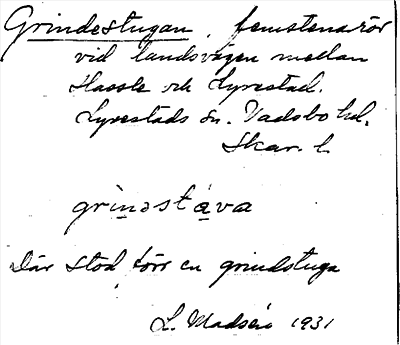 Grindestugan, femstenarör
vid landsvägen mellan
Hassle och Lyrestad.
Lyrestads sn. Vadsbo hd.
Skar. l.
grìnəstáva
Där stod förr en grindstuga
L. Madsén 1931